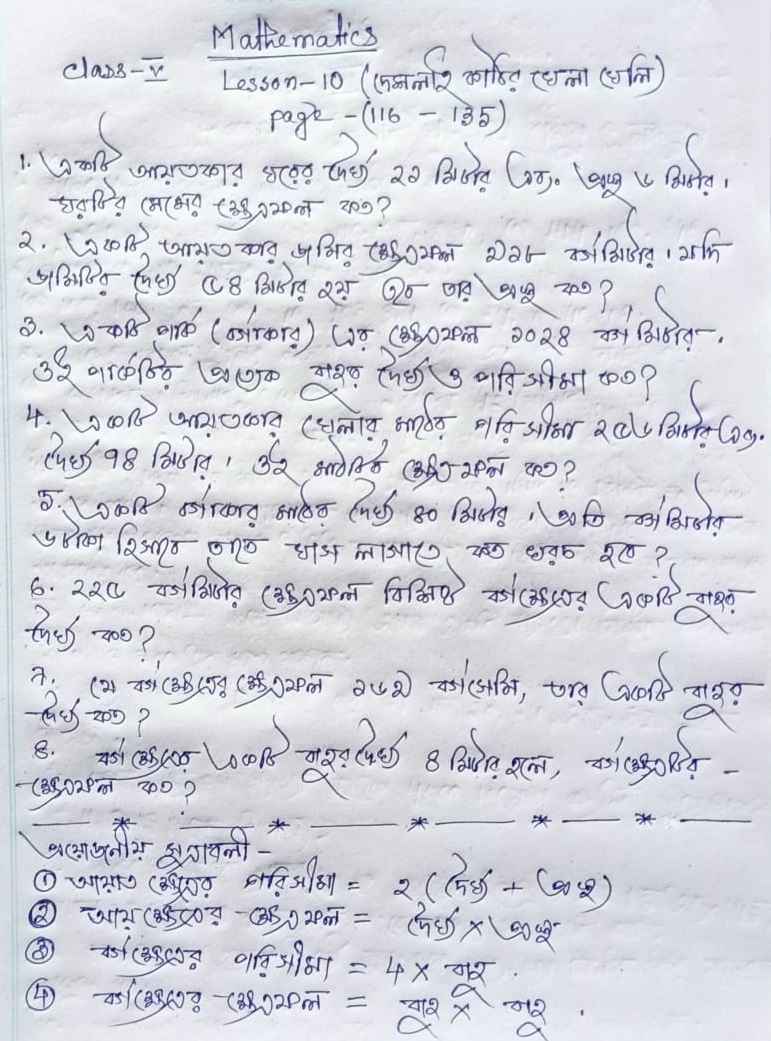 Mathematics
Class-V
Lesson-10 (দেশলাই কাঠির খেলা খেলি)
page - (116 - 135)
1. একটি আয়তকার ঘরের দৈর্ঘ্য ২২ মিটার এবং প্রস্থ ৬ মিটার।
ঘরটির মেঝের ক্ষেত্রফল কত?
২. একটি আয়তকার জমির ক্ষেত্রফল বর্গমিটার। যদি
জমিটির দৈর্ঘ্য ৫৪ মিটার হয় তবে তার প্রস্থ কত?
৩. একটি পার্ক (বর্গাকার) এর ক্ষেত্রফল ১০২৪ বর্গ মিটার,
ওই পার্কটির প্রত্যেক বাহুর দৈর্ঘ্য ও পরিসীমা কত?
4. একটি আয়তকার খেলার মাঠের পরিসীমা ২৫৬ মিটার এবং
দৈর্ঘ্য ৭৪ মিটার। ওই মাঠটির ক্ষেত্রফল কত?
5. একটি বর্গাকার মাঠের দৈর্ঘ্য ৪০ মিটার, প্রতি বর্গমিটার
৬ টাকা হিসাবে তাতে ঘাস লাগাতে কত খরচ হবে?
6. ২২৫ বর্গমিটার ক্ষেত্রফল বিশিষ্ট বর্গক্ষেত্রের একটি বাহুর
দৈর্ঘ্য কত?
7. যে বর্গক্ষেত্রের ক্ষেত্রফল বর্গসেমি, তার একটি বাহুর
দৈর্ঘ্য কত?
8. বর্গক্ষেত্রের একটি বাহুর দৈর্ঘ্য ৪ মিটার হলে, বর্গক্ষেত্রটির -
ক্ষেত্রফল কত?
প্রয়োজনীয় সূত্রাবলী -
① আয়ত ক্ষেত্রের পরিসীমা = ২ (দৈর্ঘ্য + প্রস্থ)
② আয়তক্ষেত্রের ক্ষেত্রফল = দৈর্ঘ্য × প্রস্থ
③ বর্গক্ষেত্রের পরিসীমা = 4 × বাহু.
④ বর্গক্ষেত্রের ক্ষেত্রফল = বাহু × বাহু.